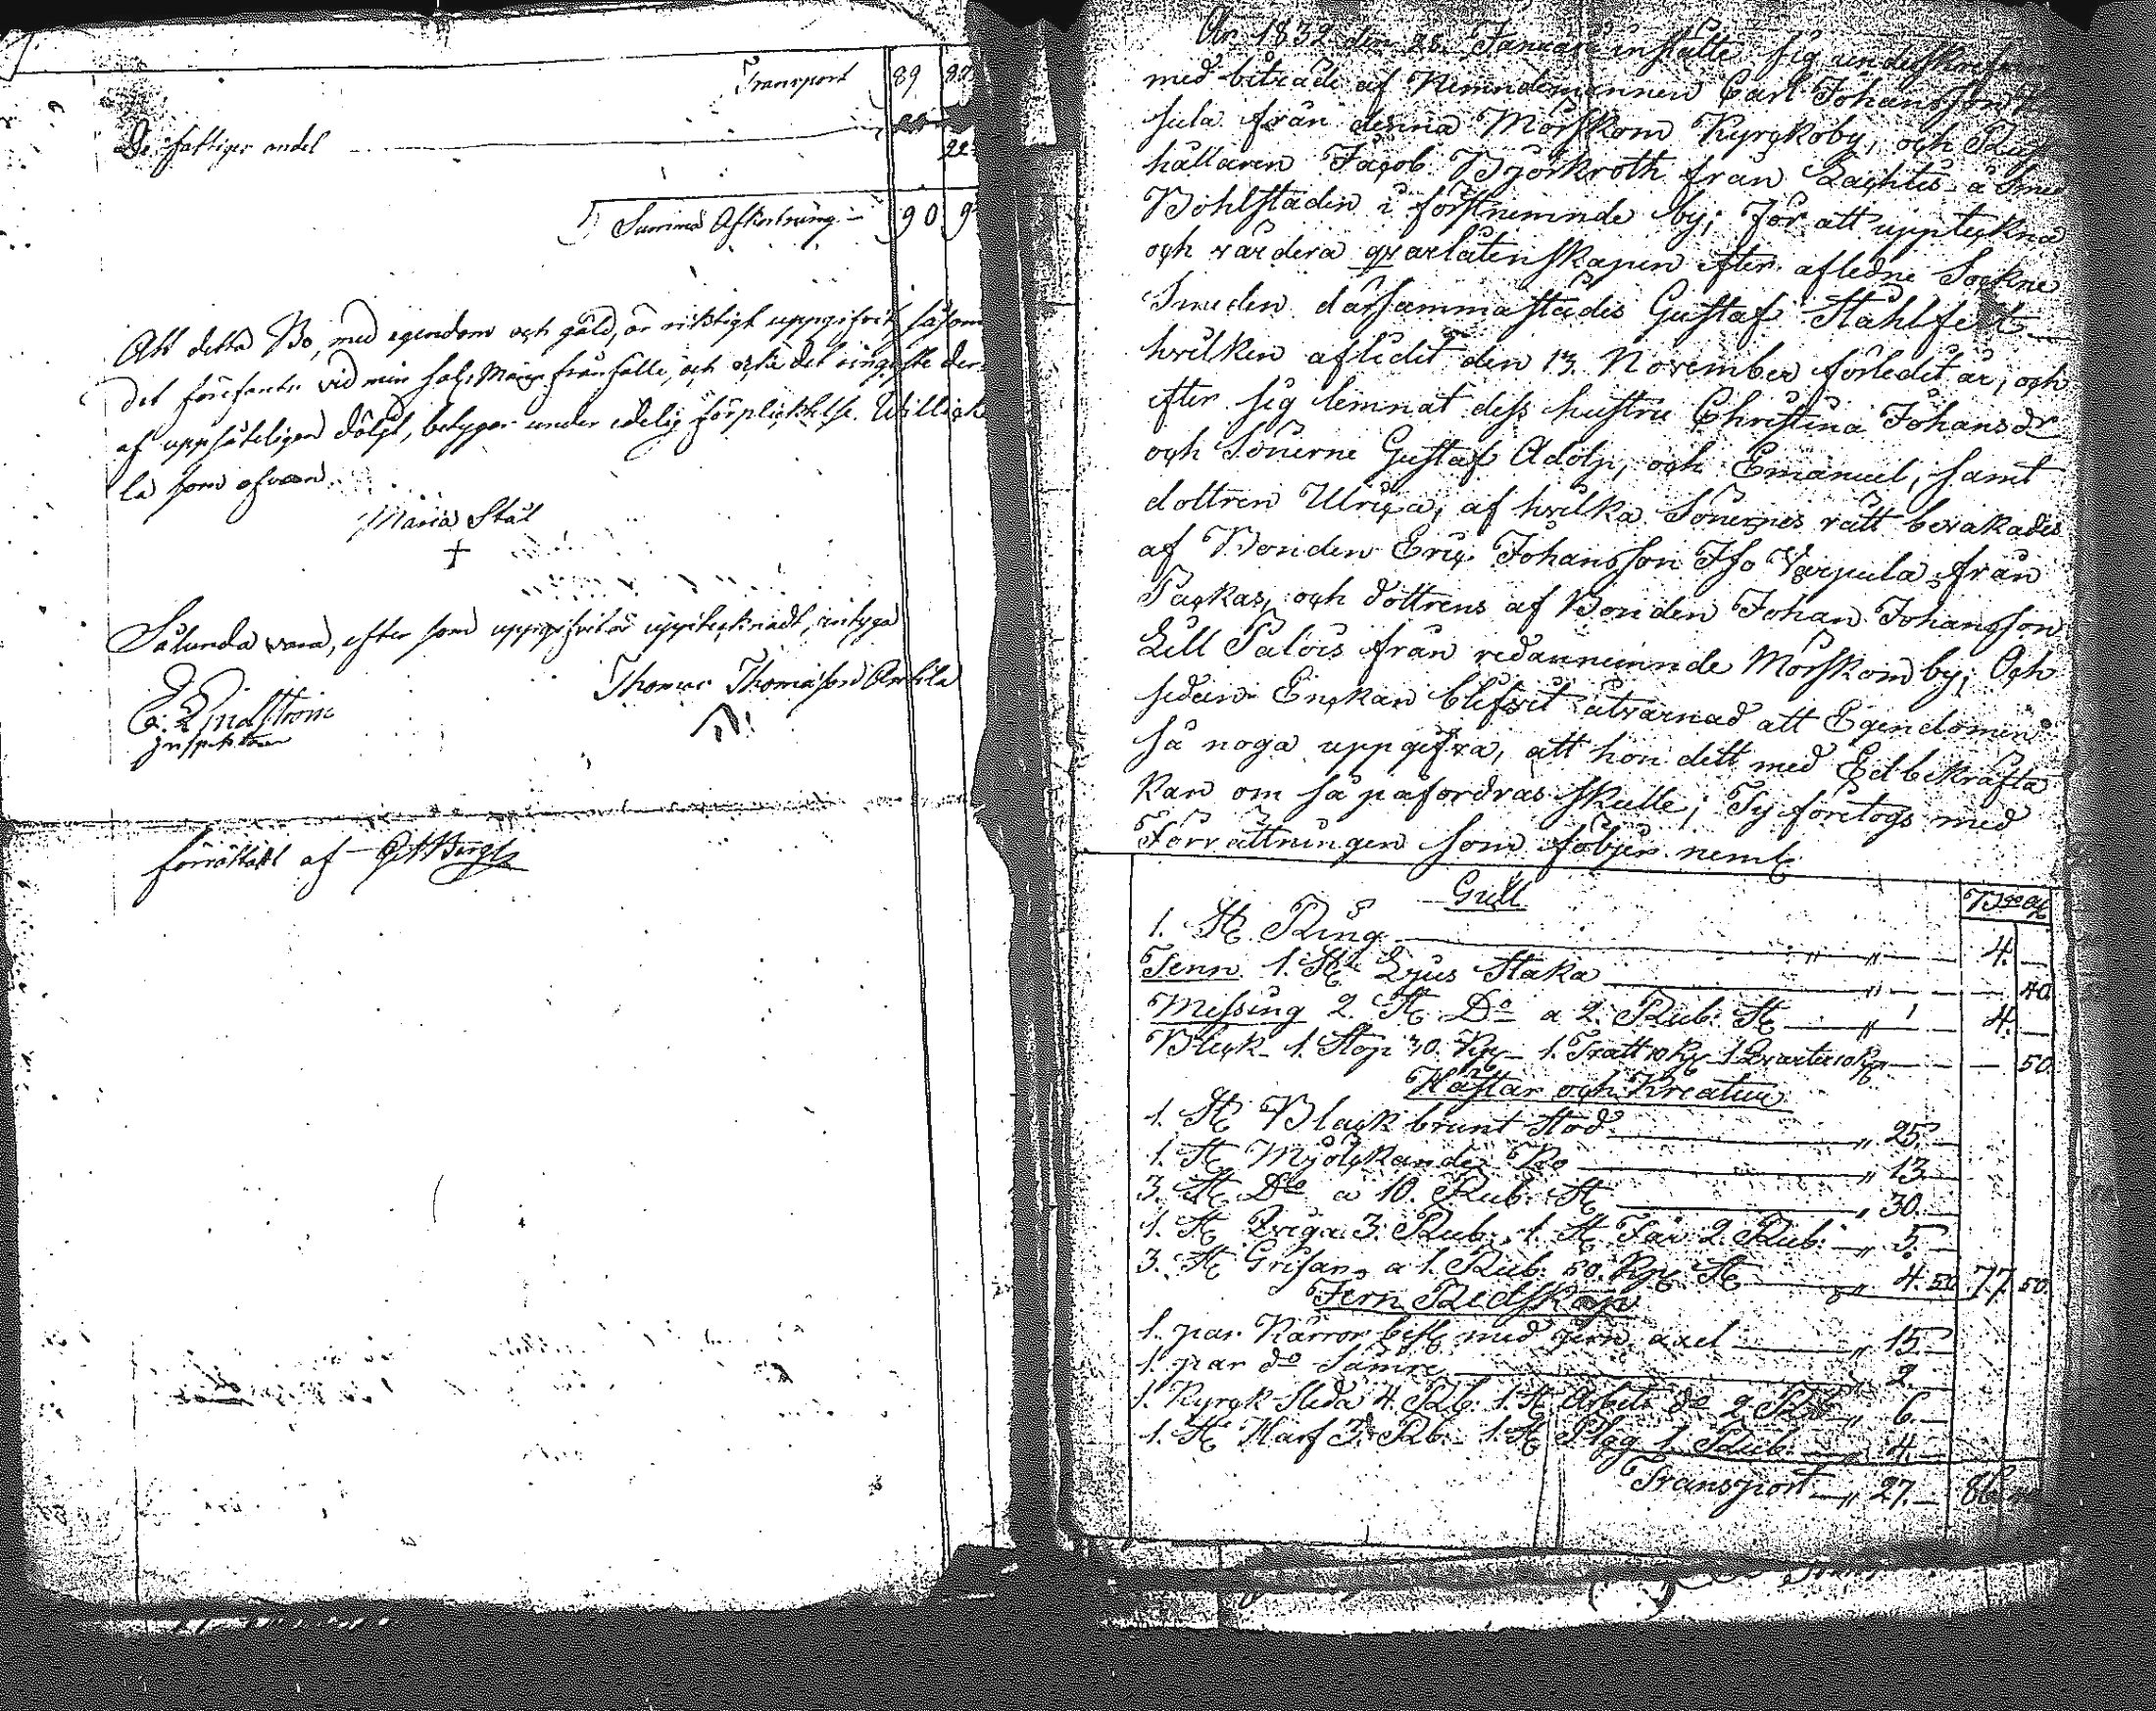 Transport 89
De fattiges andel
Summa Afkortning 90
Att detta Bo, med egendom och gäld, är riktigt uppgifvit, såsom
det förefants vid min sal. Mans frånfälle, och icke det ringaste der-
af uppsåteligen döljt, betygar under edelig förpliktelse. Willick
la som ofvan.
Maria Stål
+
Sålunda vara, efter som uppgifvit är upptecknadt, intyga
Thomas Thomasson
G. Lindström
Inspektor
förrättadt af
År 1832 den 28. Januari instälte sig undeskrefven
med biträde af Nemndemannen Carl Johansson
sula från denna Mörskom Kyrckoby, och Rust
hållaren Jacob Björkroth från Lachtis å Smed
Bohlstaden i förstnemnde by; för att uppteckna
och värdera qvarlåtenskapen efter afledne Sockne
Smeden därsammastädes Gustaf Ståhlfelt
hvilken aflidit den 13. November förledit år, och
efter sig lemnat dess hustru Christina Johansdr
och Sönerne Gustaf Adolp, och Emanuel, samt
dottren Ulrica, af hvilka Sönernes rätt bevakades
af Bonden Eric Johansson Iso Varpula från
Packas, och dottrens af Bonden Johan Johansson
Lill Palois från redannemnde Mörskom by; Och
sedan Enckan blifvit åtvarnad att Egendomen
så noga uppgifva, att hon dett med Ed bekräfta
kan om så påfordras skulle; Ty företogs med
Förrättningen som följer neml.
Gull
1. St. Ring 4.
Tenn 1. St. Ljus Staka 40
Messing 2. St. Do a 2. Rub. St. 4.
Bleck 1. Stop 30. Kp. 1. Tratt 10 Kp. 1 Qvarter 10 Kp. 50.
Hästar och Kreatur
1. St. Black brunt Stod 25.
1. St. Mjölckande Ko 13.
3. St. Do a 10. Rub. St. 30.
1. St. Qviga 3. Rub. 1. St. Får 2. Rub. 5.
3. St. Grisar a 1. Rub. 50. Kp. St. 4. 50 77. 50.
Jern Redskap
1. par Kärror besl. med jern axel 15.
1. par do Sämre 2.
1. Kyrck Släda 4. Rb. 1. St. Arbets do 2. Rub. 6.
1. St. Harf 3. Rb. 1. St. Plog 1. Rub. 4.
Transport 27. 86